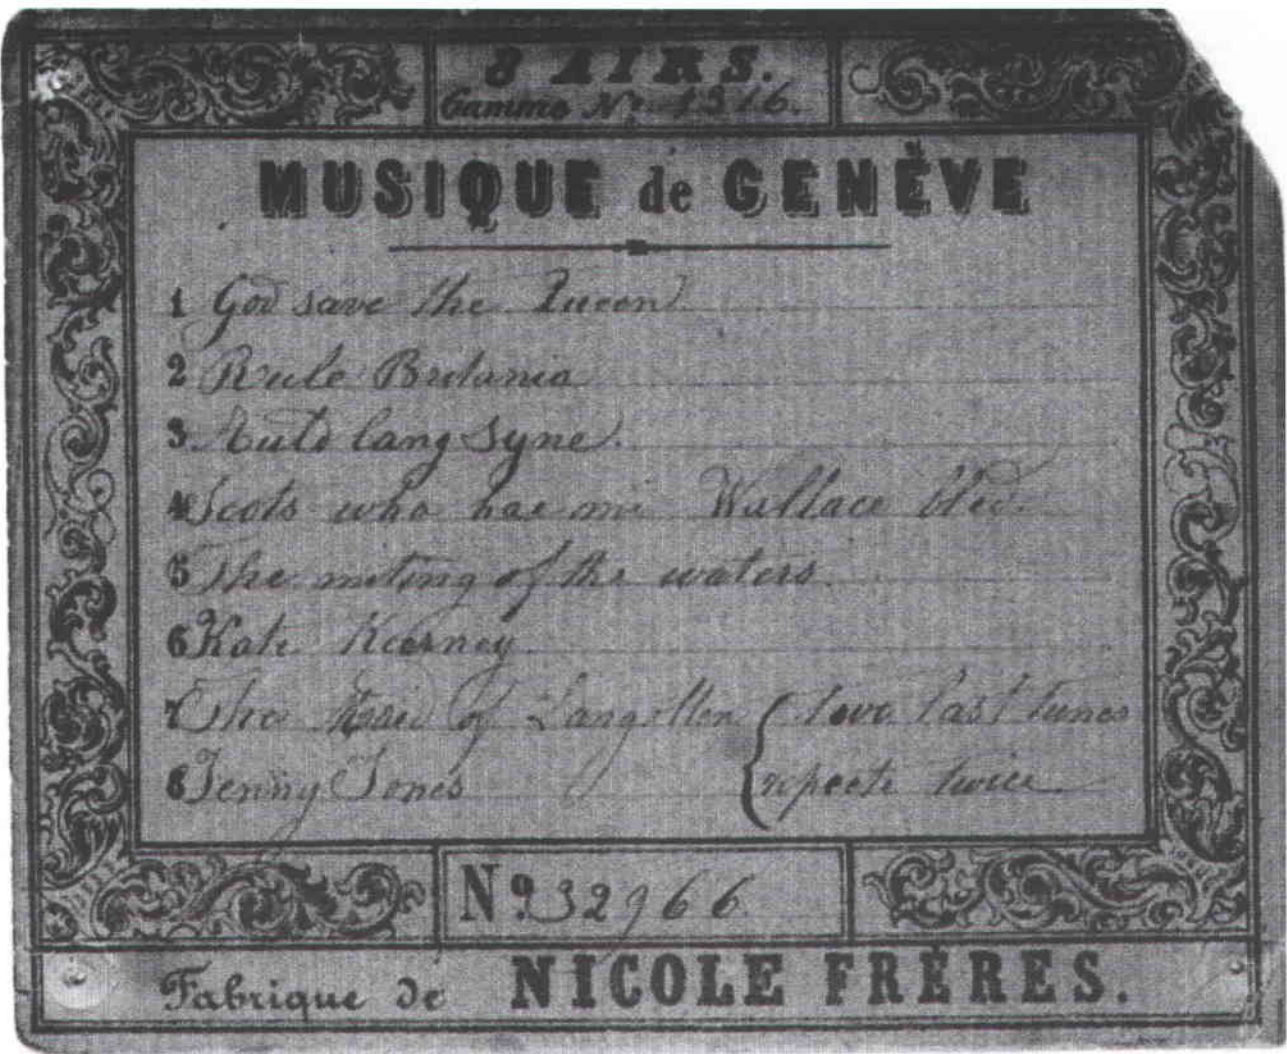 8 AIRS.
Gamme No. 1316.
MUSIQUE de GENÈVE
1 God save the Queen
2 Rule Britania
3 Auld lang Syne.
4 Scots who hae mi Wallace bled.
5 The miting of the waters
6 Kate Kearney
7 The Maid of Langollen { two last tunes
8 Jenny Jones { repeate twice
No. 32966
Fabrique de NICOLE FRÈRES.